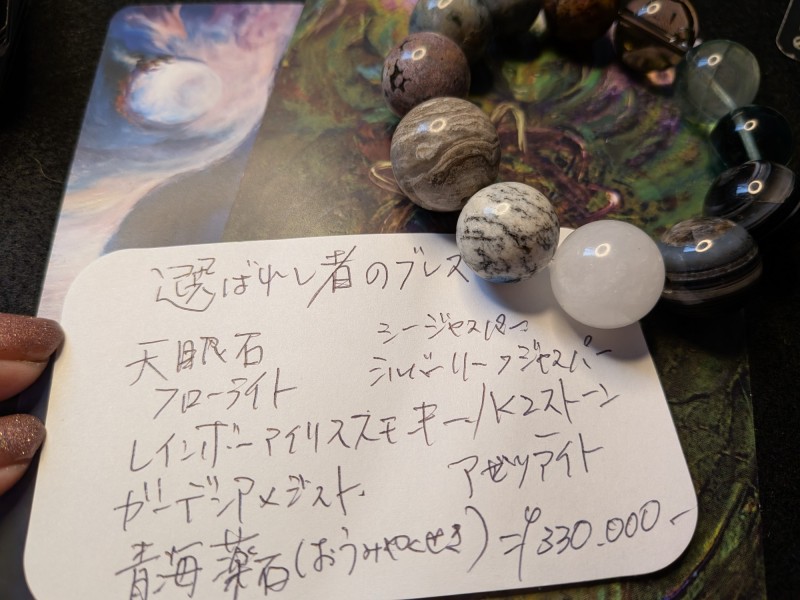 選ばれし者のブレス
天眼石 シージャスパー
フローライト シルバーリーフジャスパー
レインボーアイリススモーキー/K2ストーン
ガーデンアメジスト. アゼツアライト
青海薬石(おうみやくせき) ¥330.000-